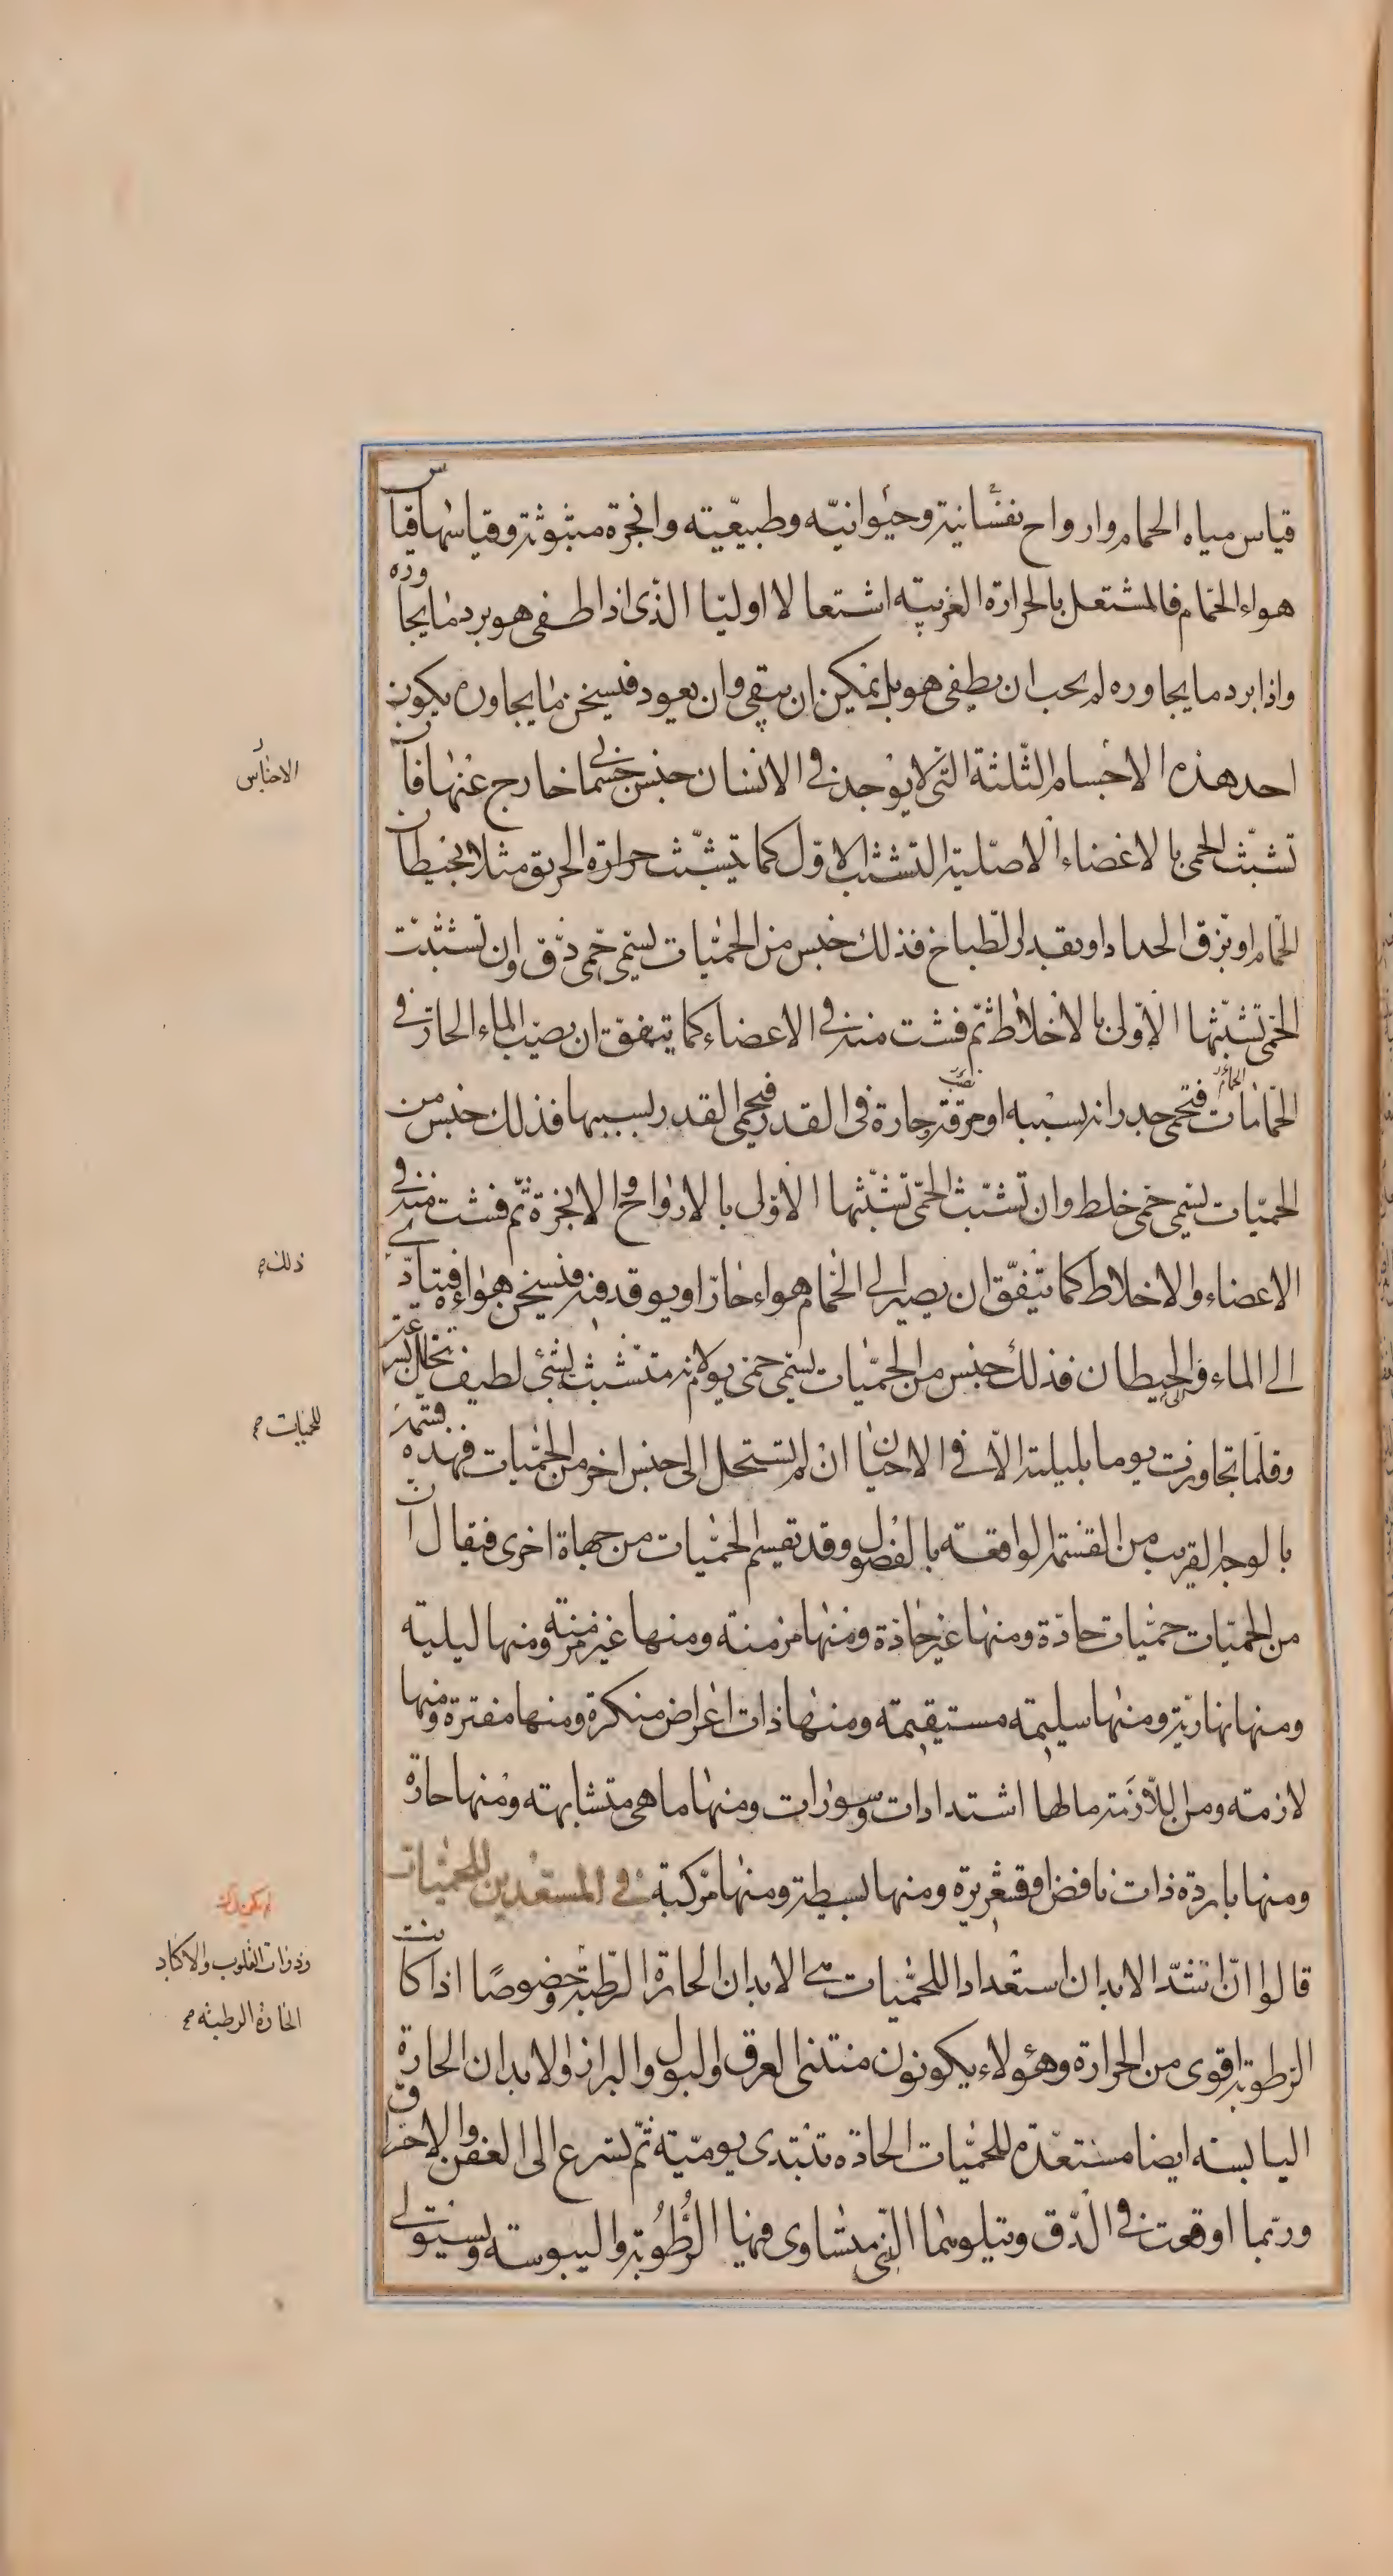 قياس مياه الحمام وارواح نفسانية وحيوانيّه وطبيعيّته وابخرة مبثوثة وقياسها قياس
هواء الحمّام فالمشتعل بالحرارة الغريبته اشتعالا اوليّا الذى اذا طفى هو برد ما يجاوره
واذا برد ما يجاوره لم يجب ان يطفى هو بل يمكن ان يبقى وان يعود فيسخن ما يجاوره يكون
احد هذه الاجسام الثّلثة التى لا يوجد فى الانسان جنس جسمانى خارج عنها فان
تشبّث الحمى بالاعضاء الاصليّة التشبّث الاوّل كما يتشبّث حرارة الحريق مثلا بحيطان
الحمّام او بزق الحداد او بقدر الطباخ فذلك جنس من الحمّيات يسمى حمى دقّ وان تشبّثت
الحمّى تشبّثها الاوّلى بالاخلاط ثمّ فشت منه فى الاعضاء كما يتفقّ ان يصبّ الماء الحارّ فى
الحمّامات فتحمى جدرانه بسببه او مرقة حارة فى القدر فيحمى القدر بسببها فذلك جنس من
الحميّات يسمى حمى خلط وان تشبّث الحمّى تشبّثها الاوّلى بالارواح والابخرة ثمّ فشت منه فى
الاعضاء والاخلاط كما يتفّق ان يصير الى الحمام هواء حارّ او يوقد فيه فيسخن هواءه فيتأدّى
الى الماء والى الحيطان فذلك جنس من الحمّيات يسمّى حمّى يوم لانه متشبث بشئ لطيف يتحلل بسرعته
وقلّما تجاوزت يوما بليلته الاّ فى الاحيان ان لم تستحل الى جنس اخر من الحمّيات فهذه قسمة
بالوجه القريب من القسمة الواقعته بالفصول وقد تقسم الحمّيات من جهاة اخرى فيقال ان
من الحمّيات حمّيات حادّة ومنها غير حادّة ومنها مزمنة ومنها غير مزمنة ومنها ليليّه
ومنها نهاريّة ومنها سليمته مستقيمته ومنها ذات اعراض منكرة ومنها مفترة ومنها
لازمته ومن اللاّزمة ما لها اشتدادات وسورات ومنها ما هى متشابهته ومنها حارة
ومنها باردة ذات نافض وقشعريرة ومنها بسيطة ومنها مركبّة فى المستعدين للحمّيات
قالوا انّ اشدّ الابدان استعدادا للحمّيات هى الابدان الحارة الرّطبة وخصوصًا اذا كانت
الرطوبة اقوى من الحرارة وهؤلاء يكونون منتنى العرق والبول والبراز والابدان الحارة
اليابسته ايضا مستعدّة للحمّيات الحادّه تبتدى يوميّته ثمّ تسرع الى العفن والاحتراق
وربّما اوقعت فى الدّق ويتلوهما التى يتساوى فيها الرُّطُوبة واليبوسته ويستولى
الحمام
الاجناس
ذلك صح
للحميات صح
وذوات القلوب والاكباد
الحارة الرطبته صح